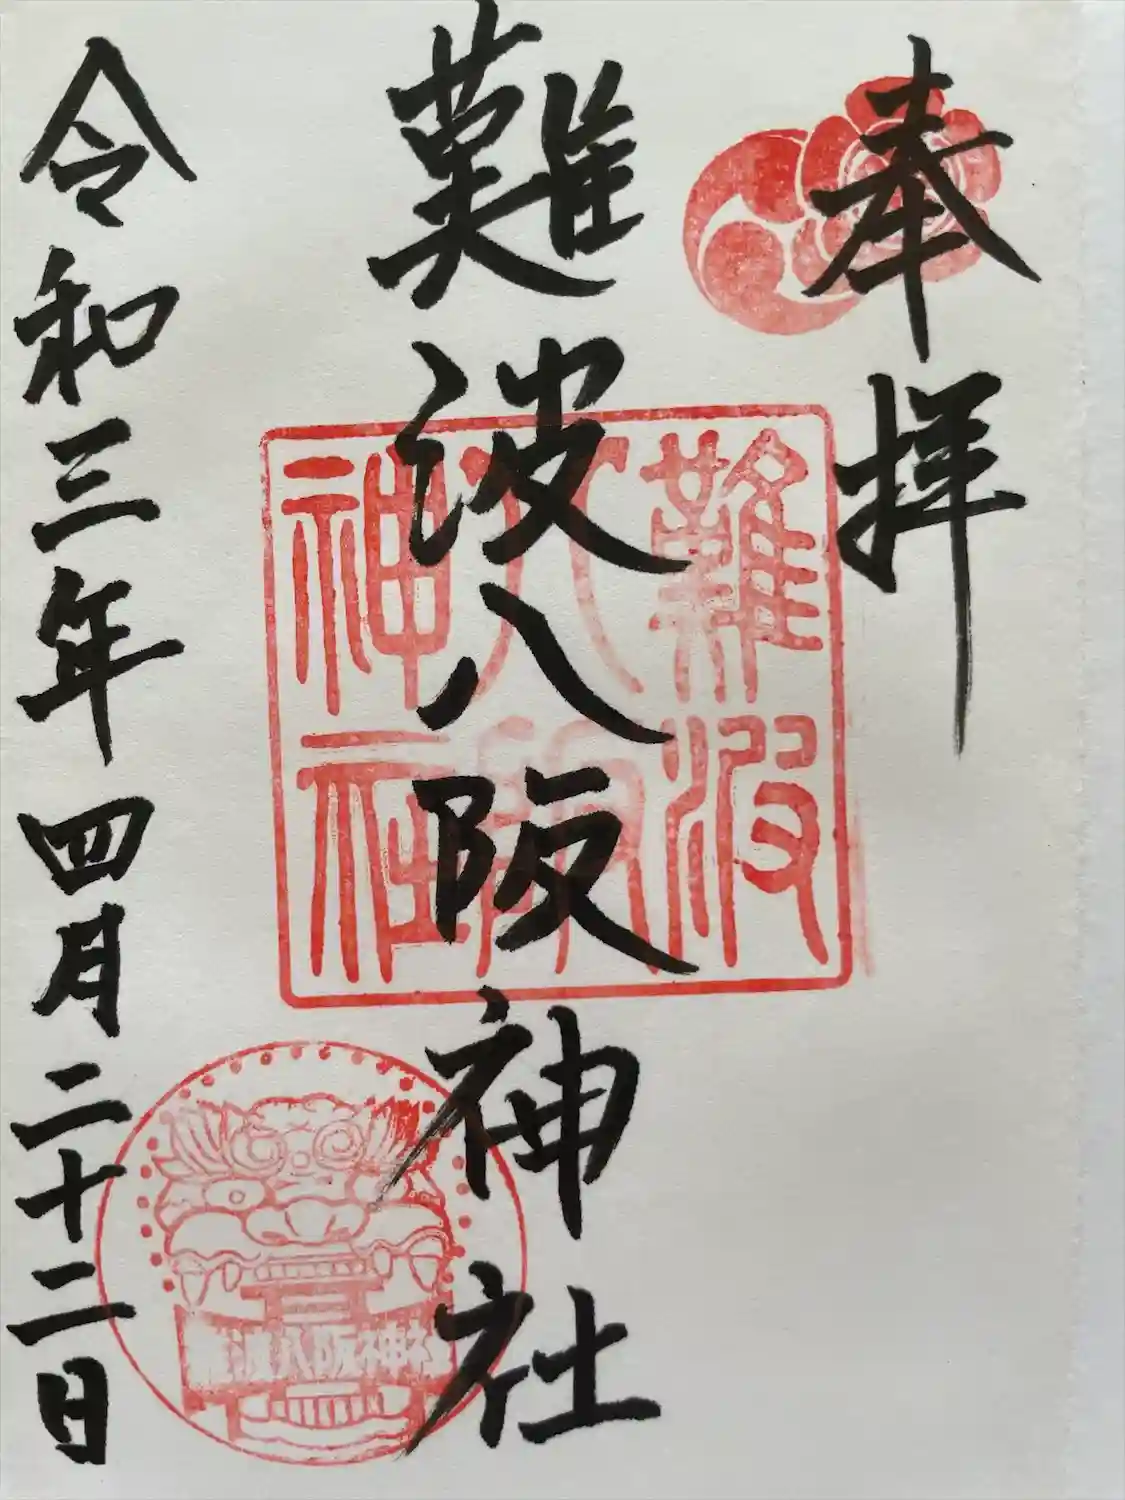 奉拝
難波八阪神社
難波
八阪
神社
難波八阪神社
令和三年四月二十二日